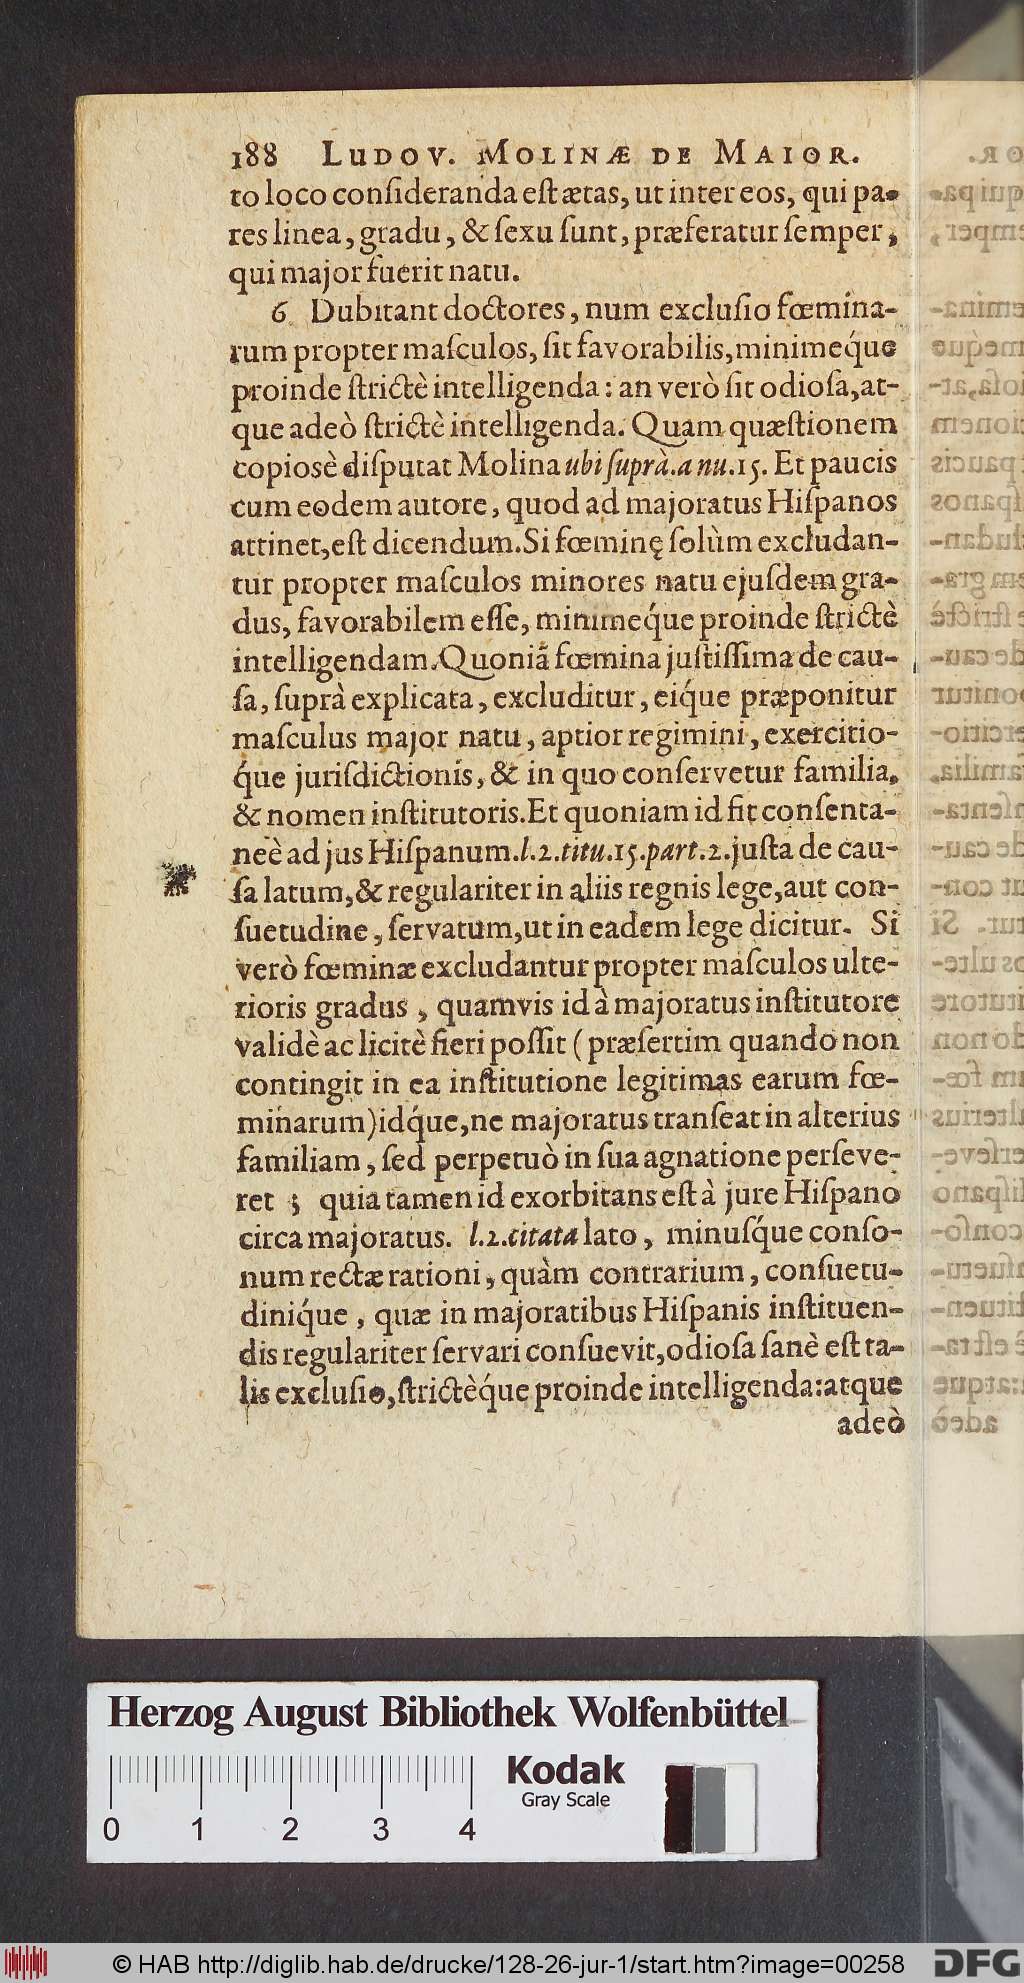 188 LUDOV. MOLINÆ DE MAIOR.
to loco conſideranda eſt ætas, ut inter eos, qui pa-
res linea, gradu, & ſexu ſunt, præferatur ſemper,
qui major fuerit natu.
6 Dubitant doctores, num excluſio fœmina-
rum propter maſculos, ſit favorabilis, minimeq́ue
proinde ſtrictè intelligenda: an verò ſit odioſa, at-
que adeò ſtrictè intelligenda. Quam quæſtionem
copiosè diſputat Molina ubi ſuprà. a nu. 15. Et paucis
cum eodem autore, quod ad majoratus Hiſpanos
attinet, eſt dicendum. Si fœminę ſolùm excludan-
tur propter maſculos minores natu ejuſdem gra-
dus, favorabilem eſſe, minimeq́ue proinde ſtrictè
intelligendam. Quoniã fœmina juſtiſſima de cau-
ſa, ſuprà explicata, excluditur, eiq́ue præponitur
maſculus major natu, aptior regimini, exercitio-
q́ue jurisdictionis, & in quo conſervetur familia,
& nomen inſtitutoris. Et quoniam id fit conſenta-
neè ad jus Hiſpanum. l. 2. titu. 15. part. 2. juſta de cau-
ſa latum, & regulariter in aliis regnis lege, aut con-
ſuetudine, ſervatum, ut in eadem lege dicitur. Si
verò fœminæ excludantur propter maſculos ulte-
rioris gradus, quamvis id à majoratus inſtitutore
validè ac licitè fieri poſſit (præſertim quando non
contingit in ea inſtitutione legitimas earum fœ-
minarum) idq́ue, ne majoratus tranſeat in alterius
familiam, ſed perpetuò in ſua agnatione perſeve-
ret; quia tamen id exorbitans eſt à jure Hiſpano
circa majoratus. l. 2. citata lato, minusq́ue conſo-
num rectæ rationi, quàm contrarium, conſuetu-
diniq́ue, quæ in majoratibus Hiſpanis inſtituen-
dis regulariter ſervari conſuevit, odioſa ſanè eſt ta-
lis excluſio, ſtrictèq́ue proinde intelligenda: atque
adeò
Herzog August Bibliothek Wolfenbüttel
Kodak
Gray Scale
0 1 2 3 4
© HAB http://diglib.hab.de/drucke/128-26-jur-1/start.htm?image=00258
DFG